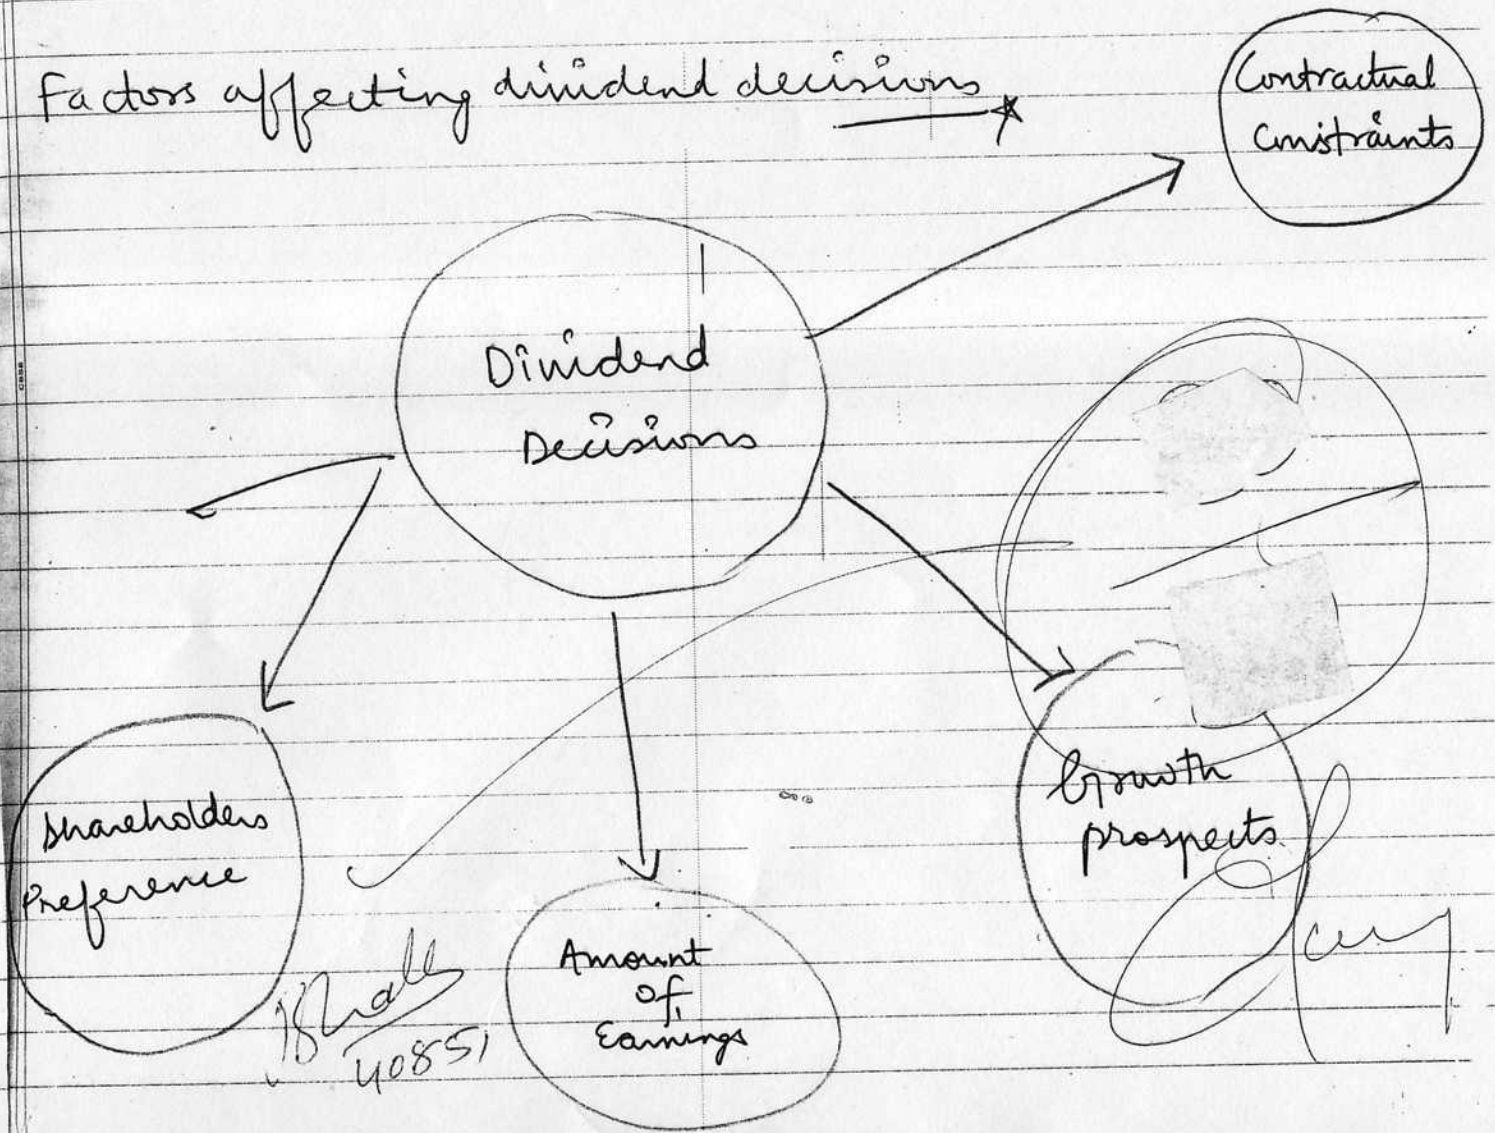 Factors affecting dividend decisions
Contractual
Constraints
Dividend
Decisions
Shareholders
Preference
Growth
prospects
Amount
of
Earnings
40851